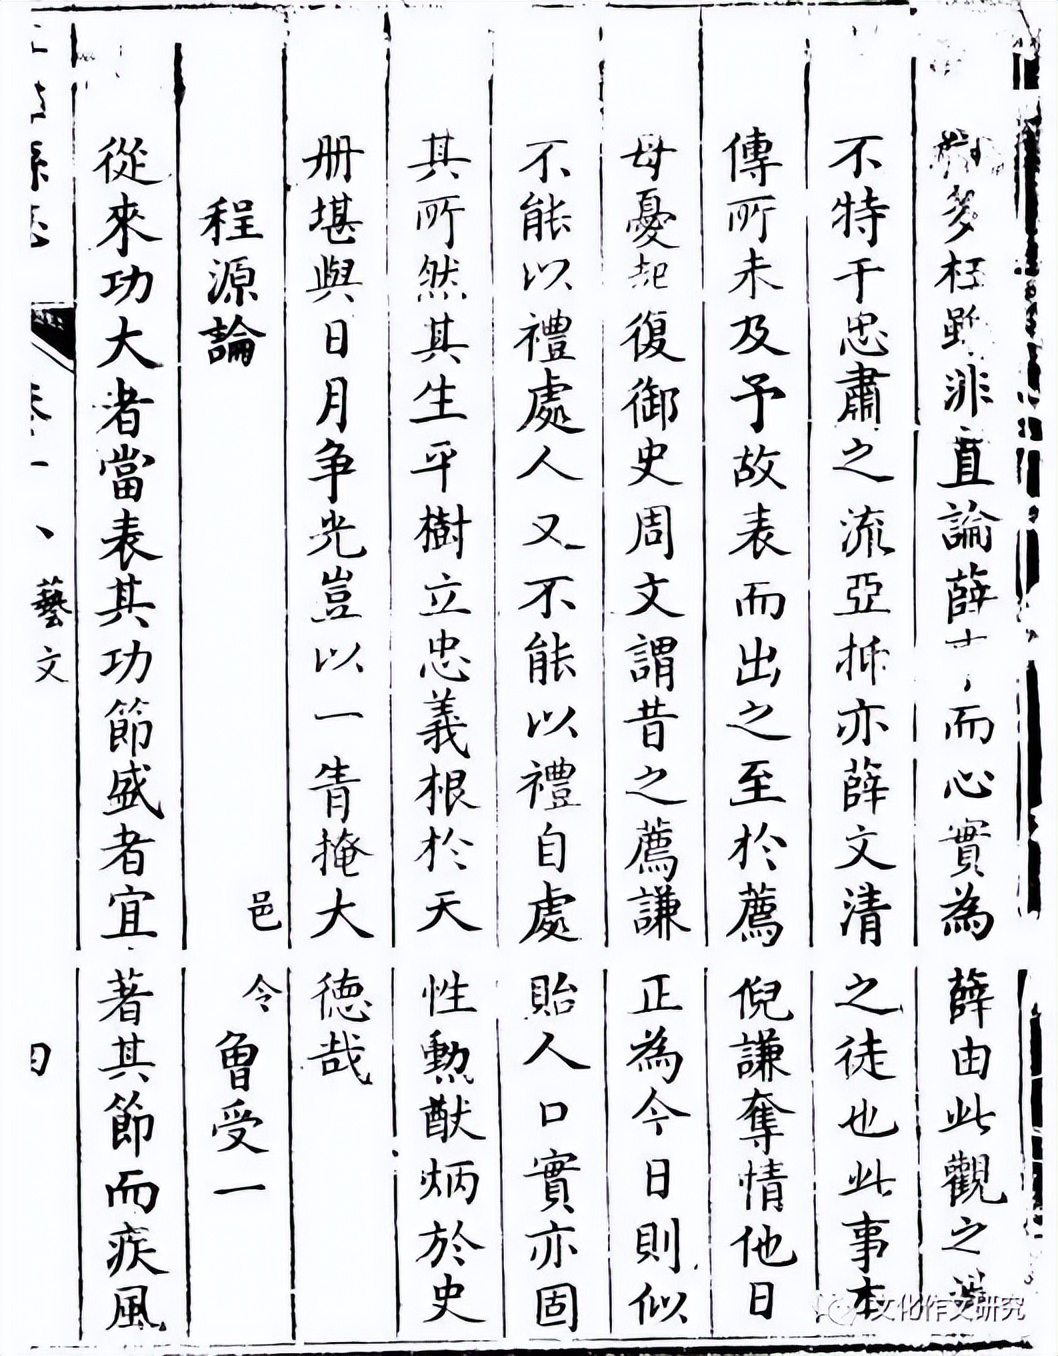 多枉雖非直論薛而心實為薛由此觀之
不特于忠肅之流亞抑亦薛文清之徒也此事本
傳所未及予故表而出之至於薦倪謙奪情他日
母憂起復御史周文謂昔之薦謙正為今日則似
不能以禮處人又不能以禮自處貽人口實亦固
其所然其生平樹立忠義根於天性勲猷炳於史
册堪與日月争光豈以一眚掩大德哉
程源論
邑令魯受一
從來功大者當表其功節盛者宜著其節而疾風
縣志
卷十一
藝文
四
文化作文研究